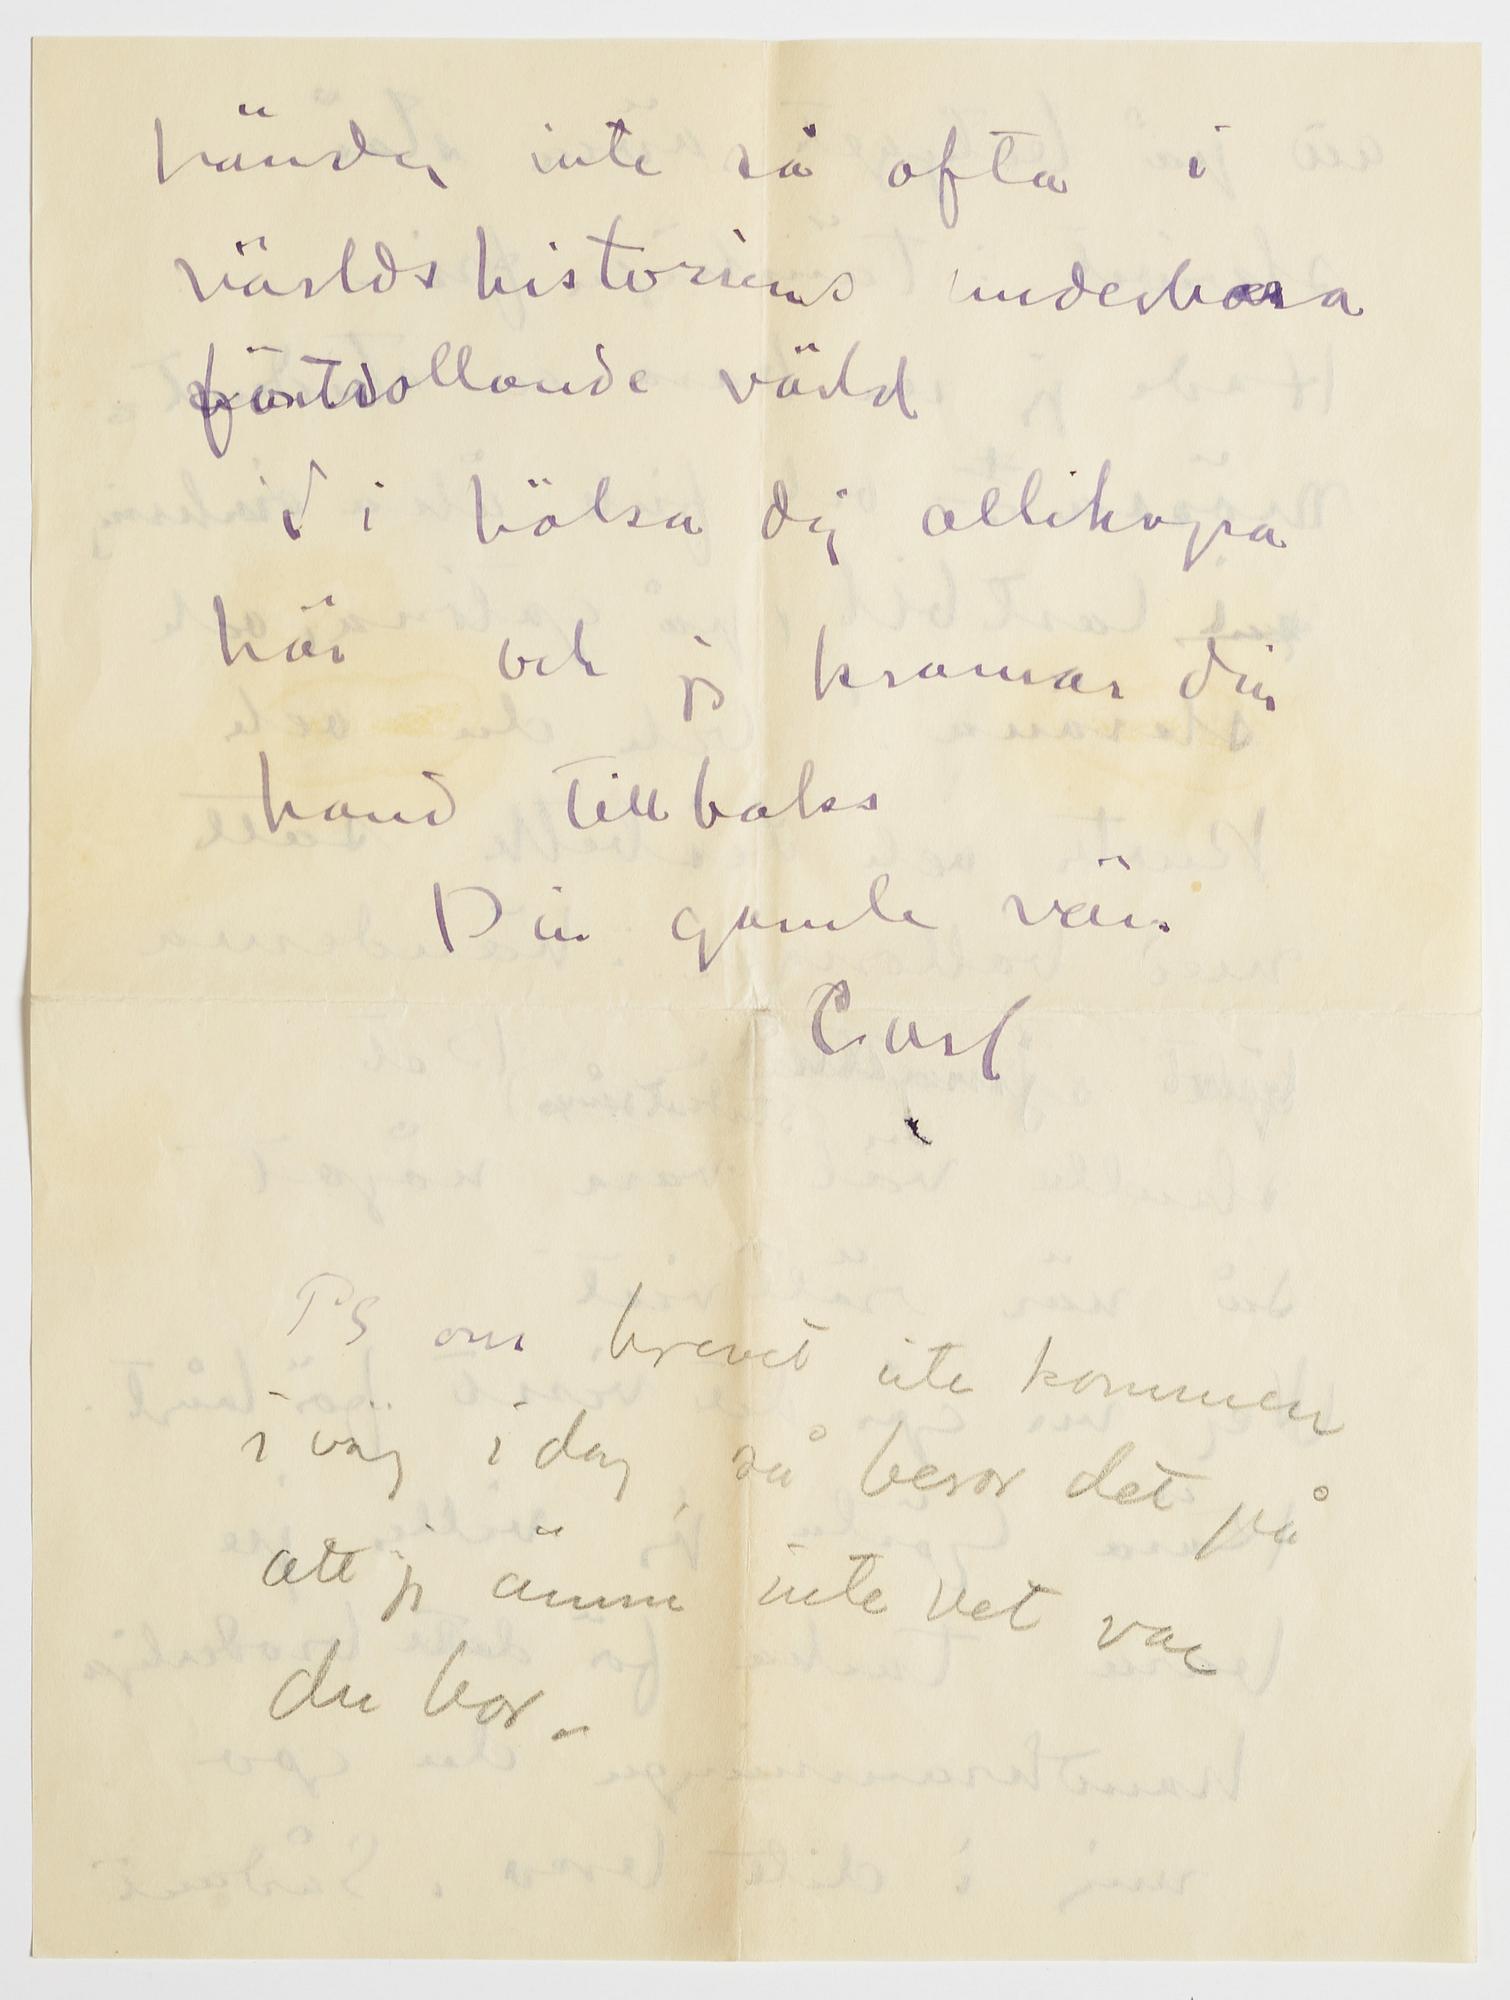 händer inte så ofta i
världshistoriens underbara
förtrollande värld
Vi hälsa dig allihopa
här och jg kramar din
hand tillbaks
Din gamle vän
Carl
PS om brevet inte kommer
i väg i dag, så beror det på
att jg ännu inte vet var
du bor.